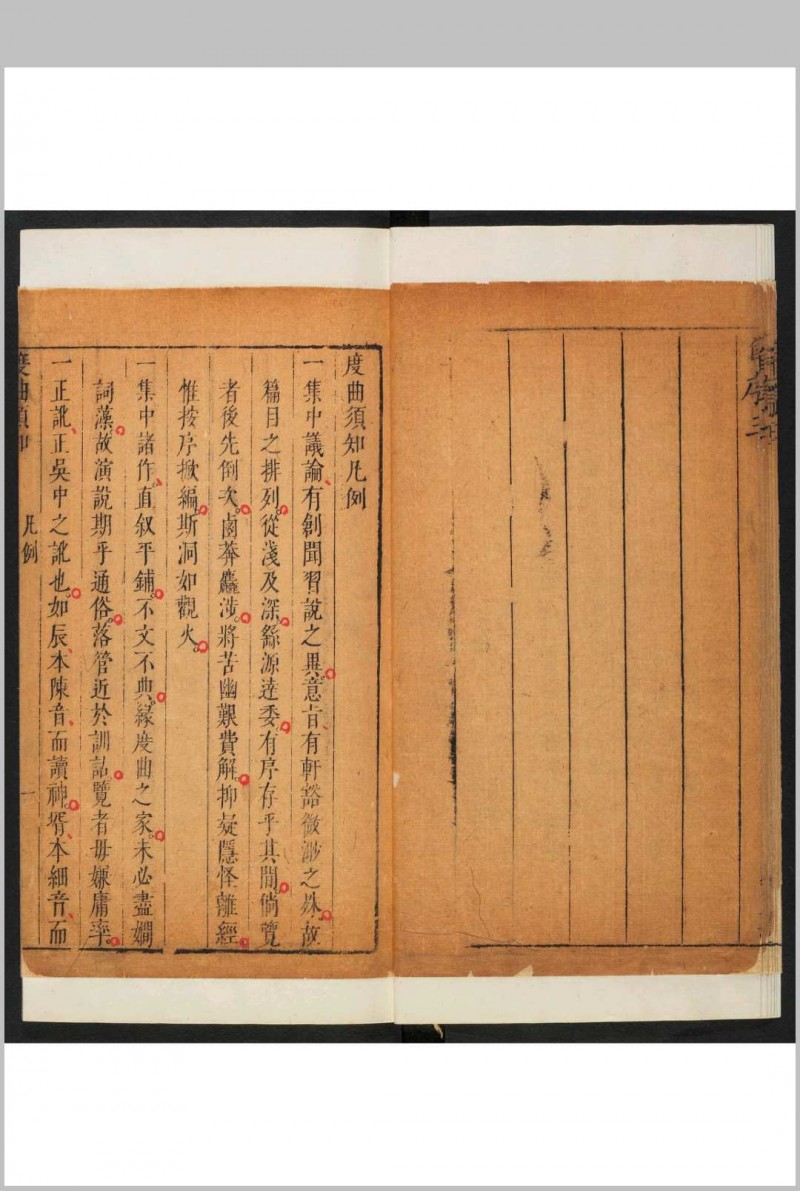 度曲須知凡例
一集中議論有創聞習說之異意旨有軒豁微渺之殊故
篇目之排列從淺及深繇源達委有序存乎其間倘覽
者後先倒次鹵莽麤涉將苦幽艱費解抑疑隱怪離經
惟按序掀編斯洞如觀火
一集中諸作直叙平鋪不文不典緣度曲之家未必盡嫺
詞藻故演說期乎通俗落管近於訓詁覽者毋嫌庸率
一正訛正吳中之訛也如辰本陳音而讀神壻本細音而
度曲須知 凡例 一